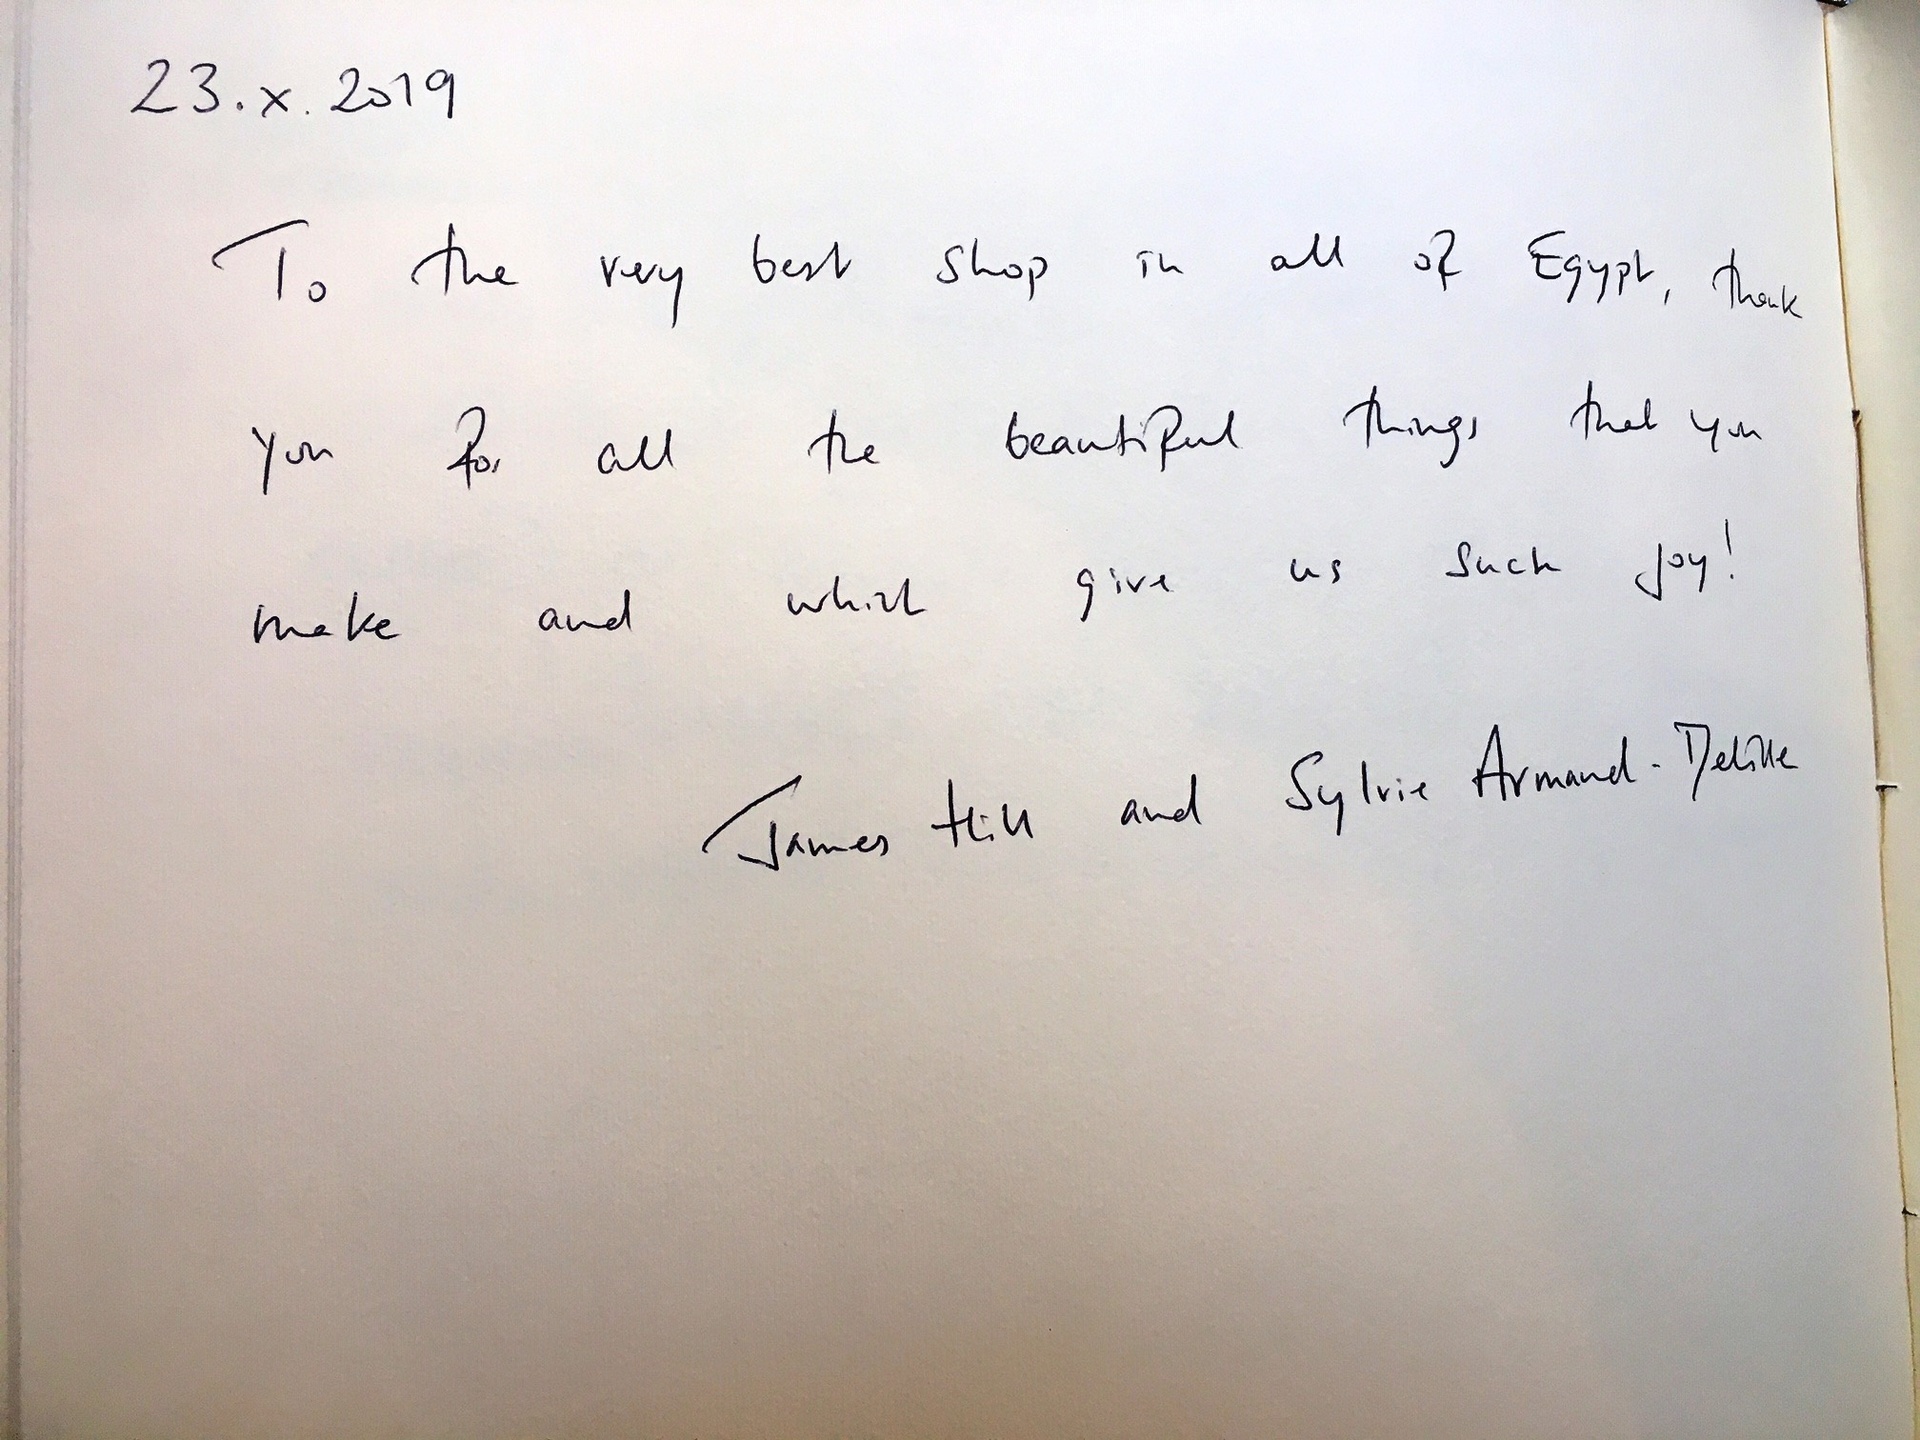 23.x.2019
To the very best shop in all of Egypt, thank
you for all the beautiful things that you
make and which give us such joy!
James Hill and Sylvie Armand-Delille